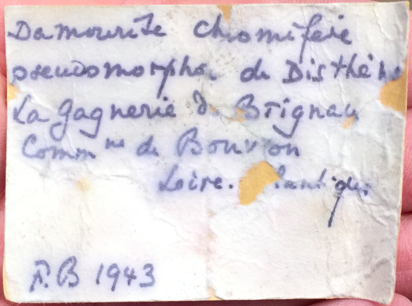 Damourite chromifère
pseudomorphe de Disthène
La Gagnerie de Brignau
Comm ne de Bouvron
Loire.
F.B 1943